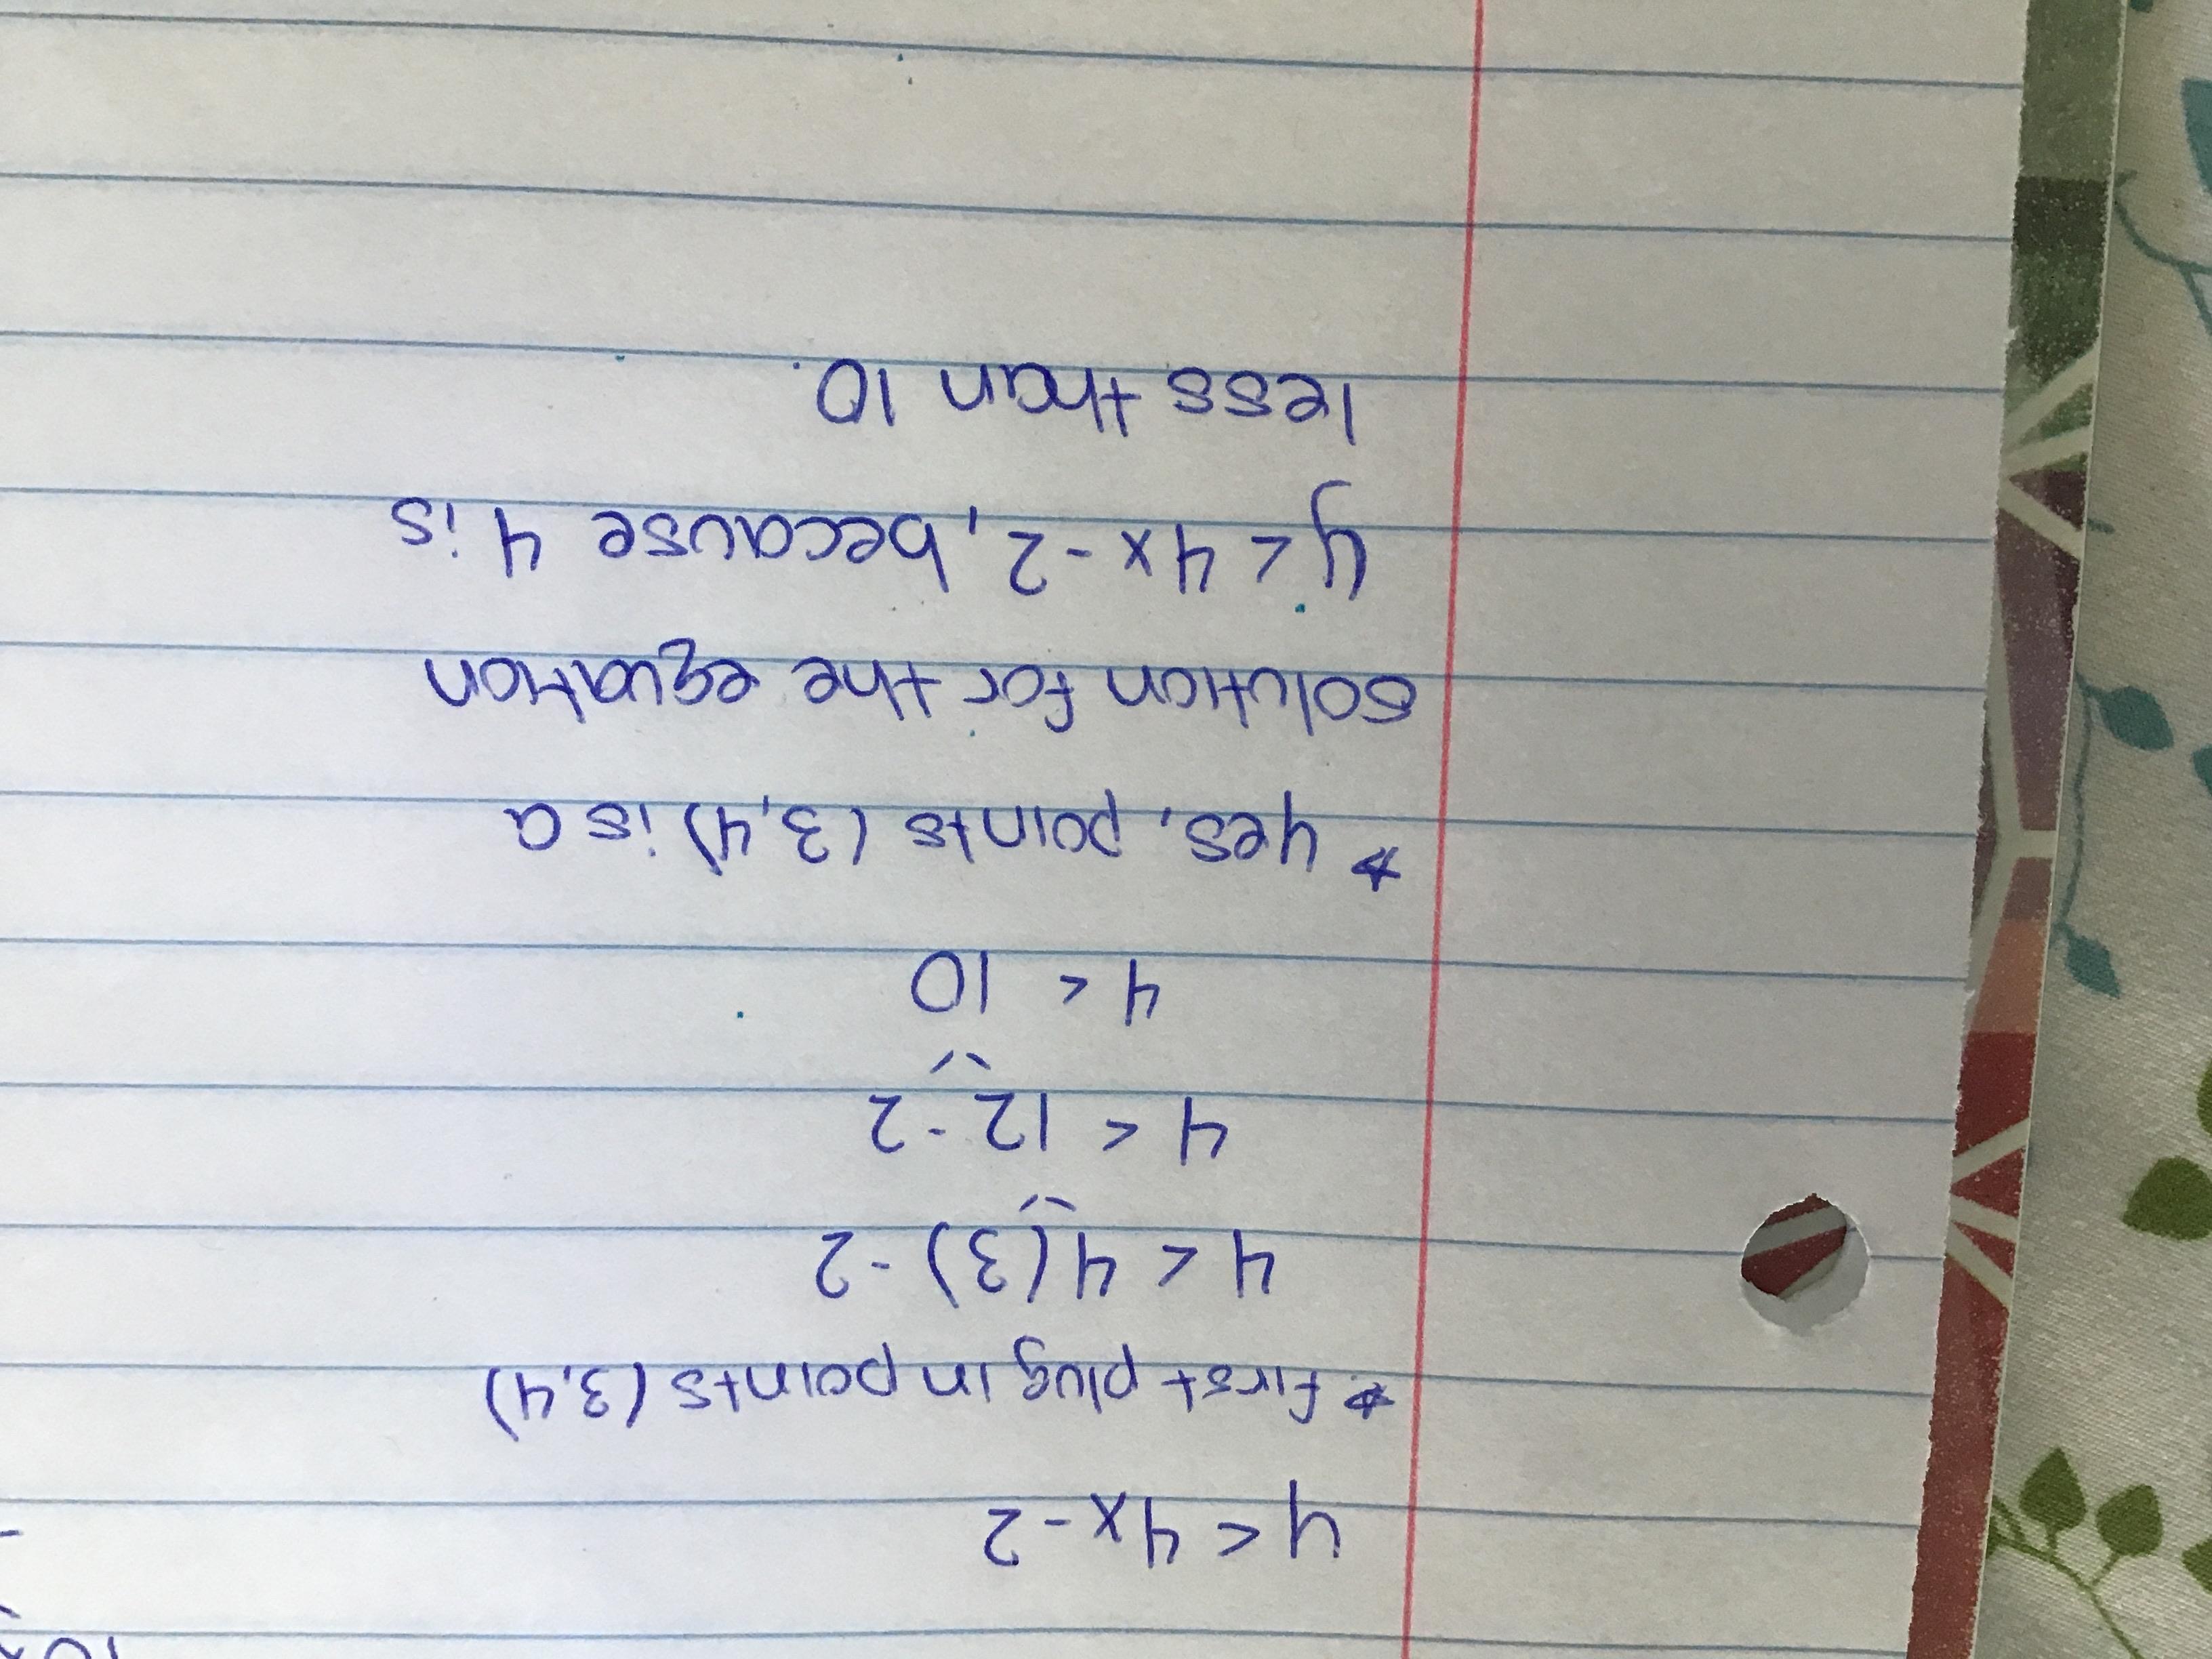 y < 4x - 2
* first plug in points (3,4)
4 < 4(3) - 2
4 < 12 - 2
4 < 10
* yes, points (3,4) is a
solution for the equation
y < 4x - 2, because 4 is
less than 10.